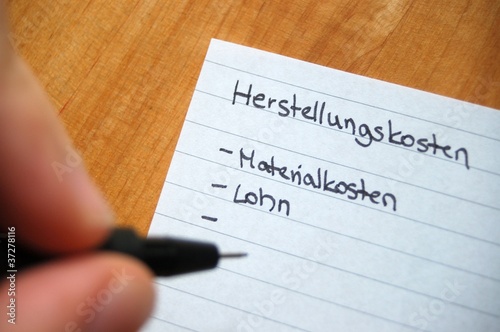 Herstellungskosten
- Materialkosten
- Lohn
-
Adobe Stock | #37278116